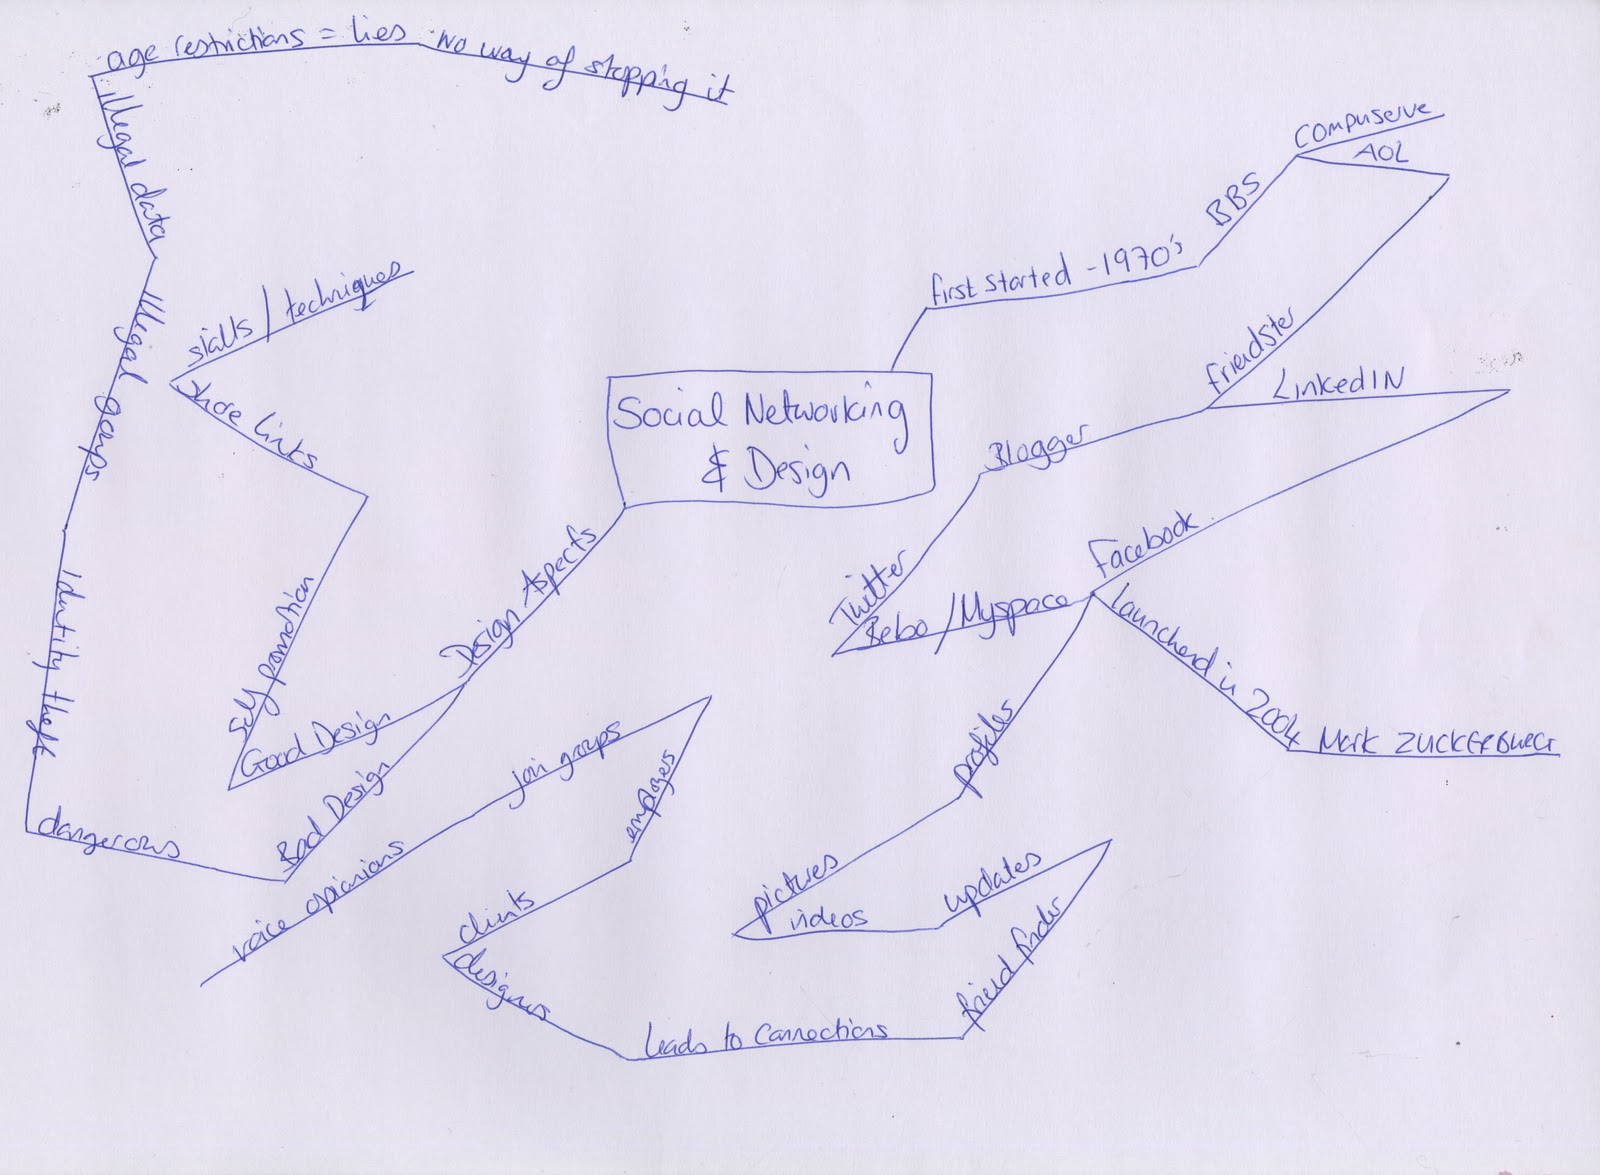 Social Networking
& Design
first started - 1970's
BBS
Compuserve
AOL
friendster
LinkedIN
Blogger
Twitter
Bebo / Myspace
Facebook
launched in 2004
Mark
profiles
pictures
videos
updates
friend finder
leads to connections
designers
clients
employers
join groups
voice opinions
Design Aspects
Good Design
Self
share links
skills / techniques
Bad Design
dangerous
Identity theft
illegal groups
illegal data
age restrictions = lies
no way of stopping it